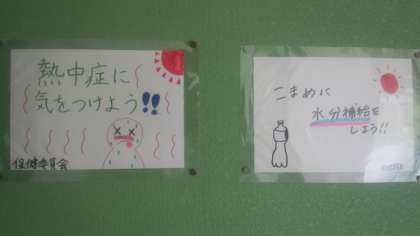 熱中症に
気をつけよう!!
保健委員会
こまめに
水分補給を
しよう!!